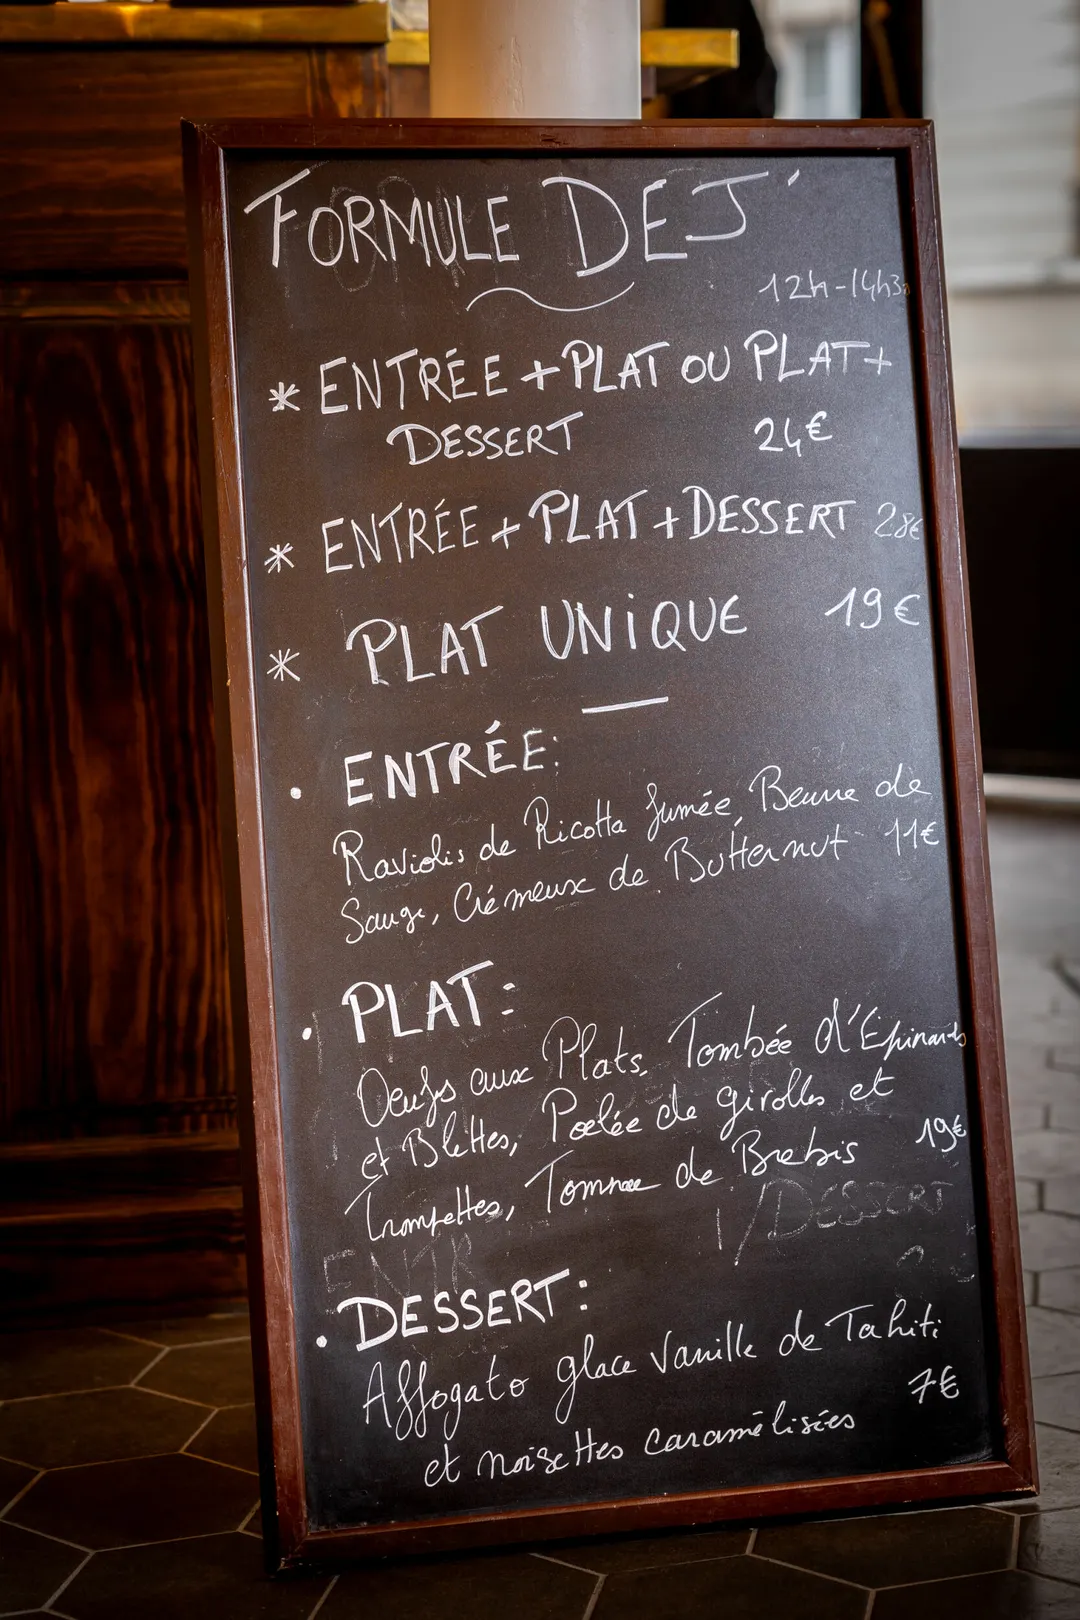 FORMULE DEJ'
12h-14h30
* ENTRÉE + PLAT OU PLAT +
DESSERT 24€
* ENTRÉE + PLAT + DESSERT 28€
* PLAT UNIQUE 19€
• ENTRÉE:
Raviolis de Ricotta fumée, Beurre de
Sauge, Crémeux de Butternut 11€
• PLAT:
Oeufs aux Plats, Tombée d'Epinards
et Blettes, Poelée de girolles et
Trompettes, Tomme de Brebis 19€
/DESSERT
ENTR
• DESSERT:
Affogato glace Vanille de Tahiti
7€
et noisettes caramélisées